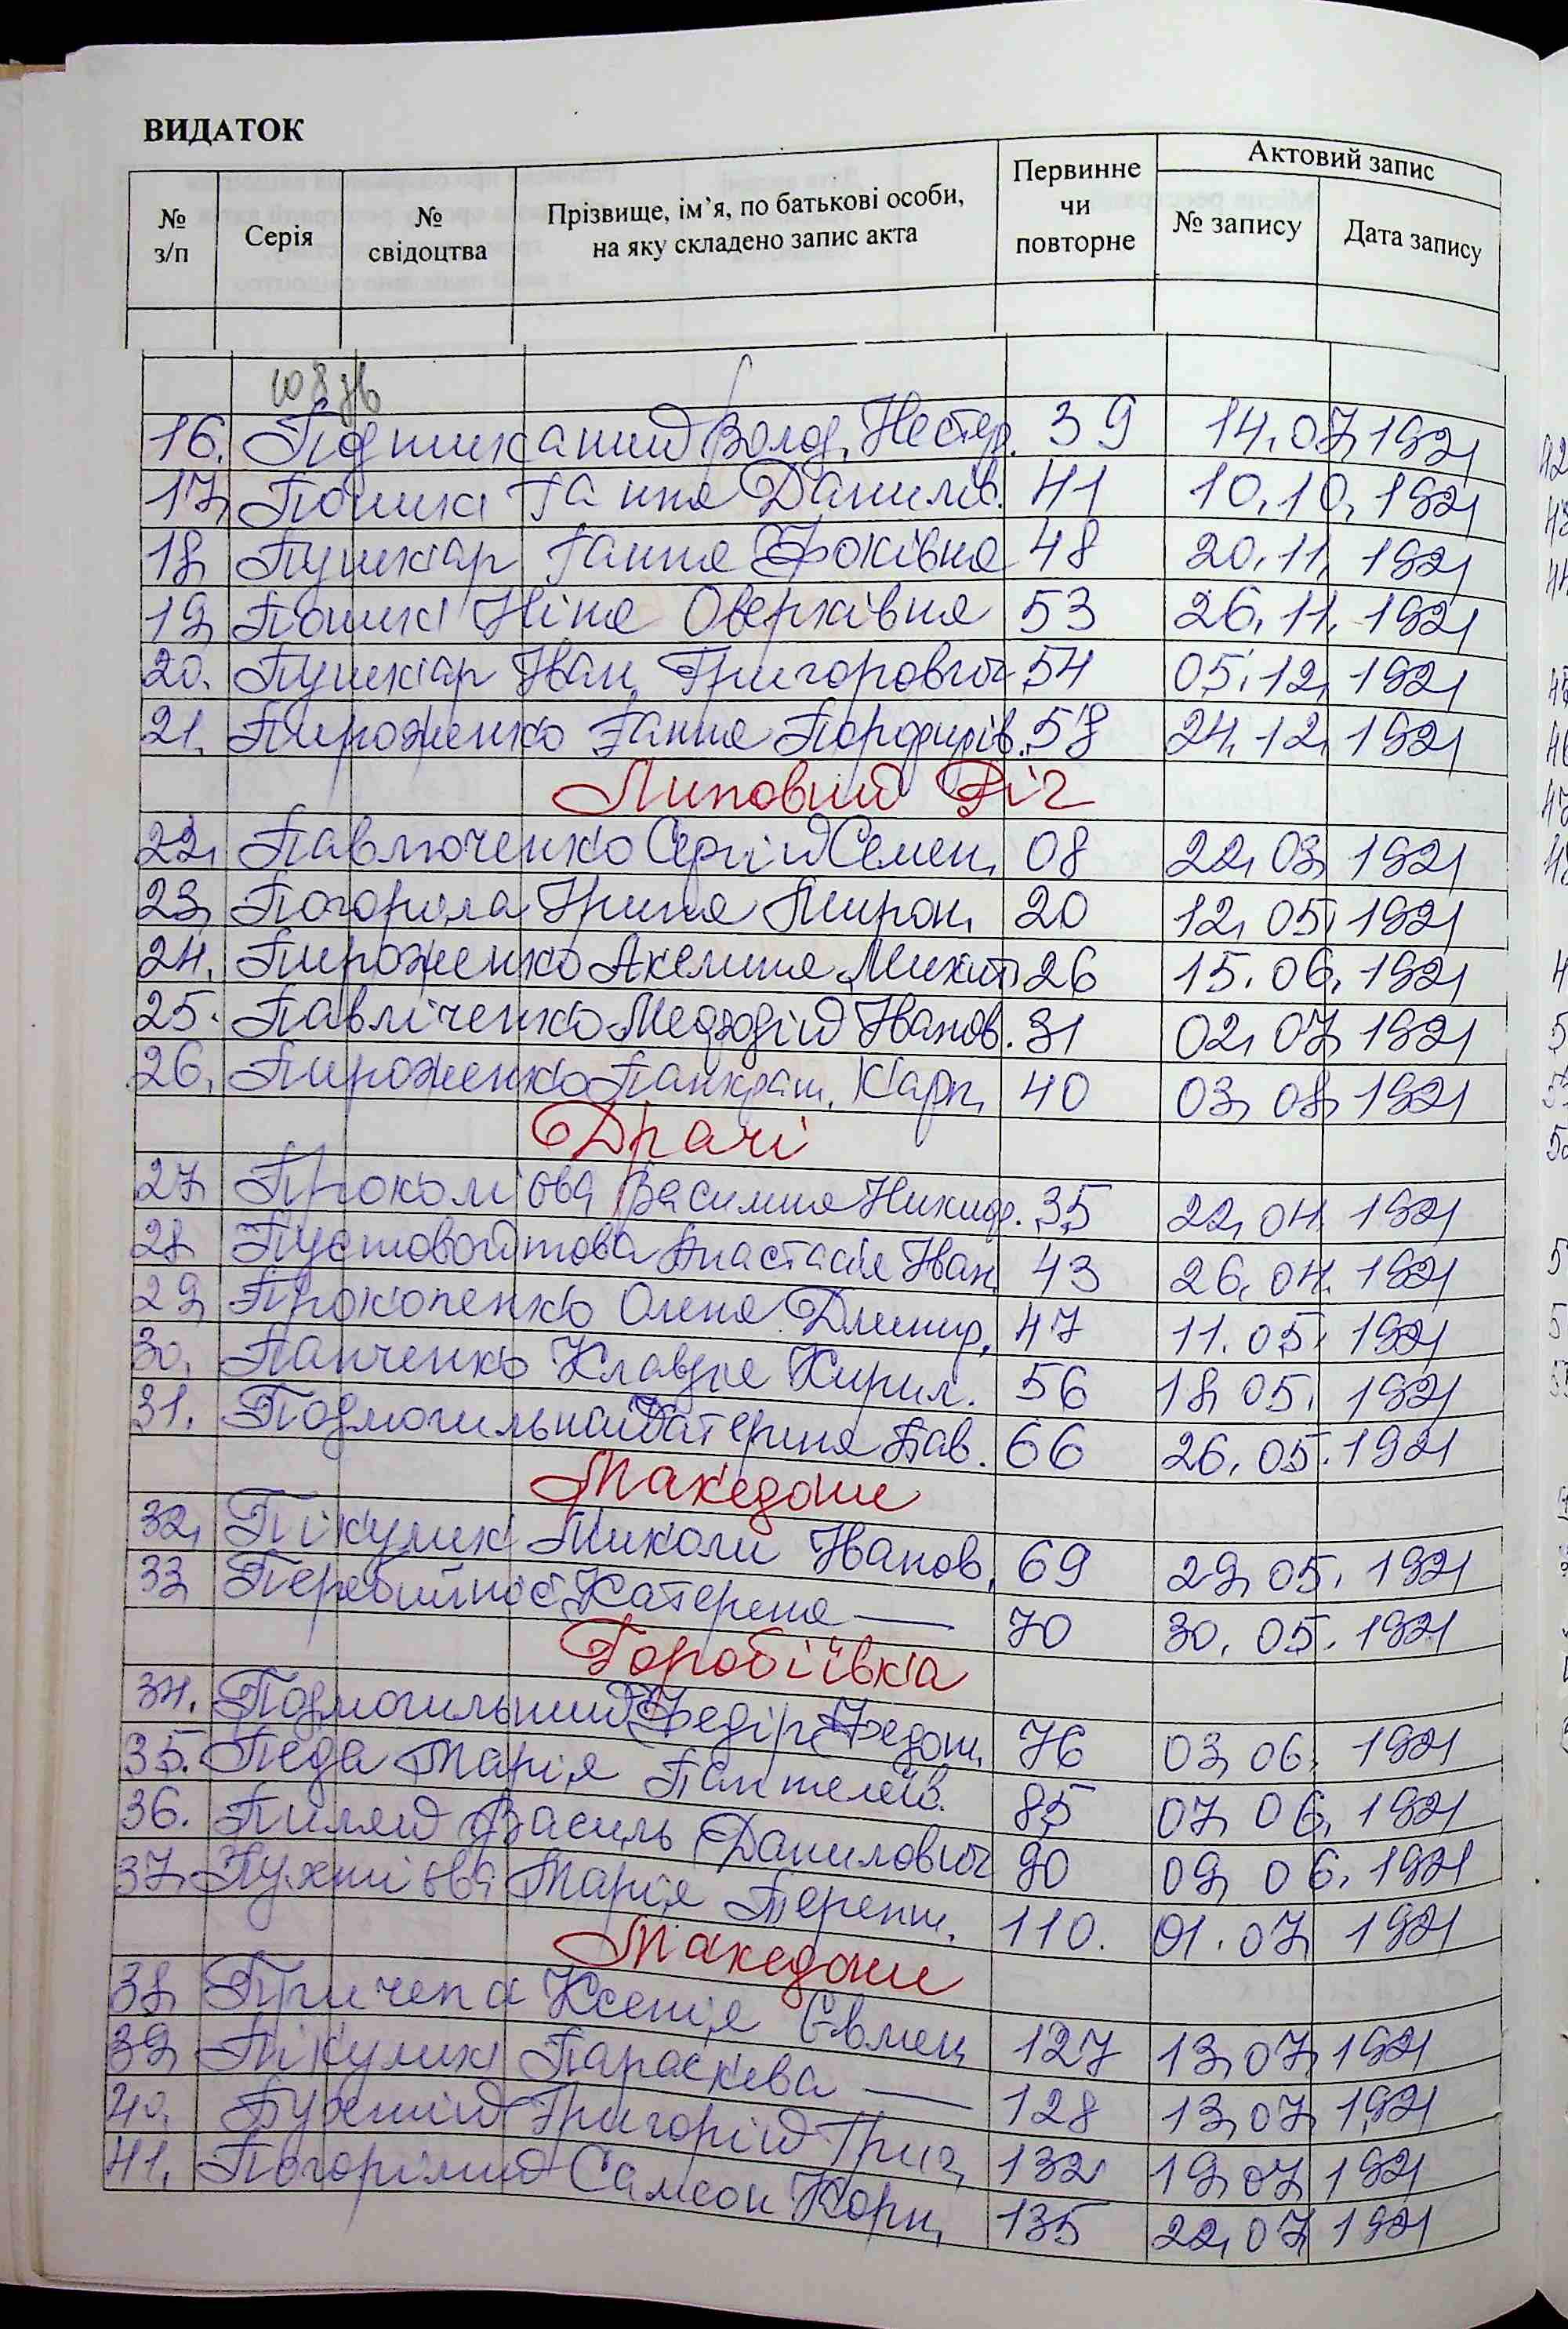 ВИДАТОК
№ з/п
Серія
№ свідоцтва
Прізвище, ім'я, по батькові особи, на яку складено запис акта
Первинне чи повторне
Актовий запис
№ запису
Дата запису
16. Волод．Нестер. 39 14.07.1921
17. Пошка Ганна Данилів. 41 10.10.1921
18. Пушкар Ганна Фоківна 48 20.11.1921
19. Пошка Ніна Оверківна 53 26.11.1921
20. Пушкар Іван Григорович 54 05.12.1921
21. Пироженко Ганна Порфирів. 58 24.12.1921
Липовий Ріг
22. Павлюченко Сергій Семен. 08 22.03.1921
23. Погоріла Ірина Мирон. 20 12.05.1921
24. Пироженко Акелина Михайл. 26 15.06.1921
25. Павліченко Мефодій Іванов. 31 02.07.1921
26. Пироженко Панкрат. Карп. 40 03.08.1921
Драчі
27. Василина Никиф. 35 22.04.1921
28. Пустовойтова Анастасія Іван. 43 26.04.1921
29. Прокопенко Олена Дмитр. 47 11.05.1921
30. Панченко Клавдія Кирил. 56 18.05.1921
31. Подмогильна Катерина Пав. 66 26.05.1921
Македони
32. Пікулик Миколи Іванов. 69 29.05.1921
33. Перебийніс Катерина — 70 30.05.1921
Горобіївка
34. Подмогильний Федір Федот. 76 03.06.1921
35. Педа Марія Пантелеїв. 85 07.06.1921
36. Пиляй Василь Данилович 90 09.06.1921
37. Марія Терент. 110. 01.07.1921
Македони
38. Причепа Ксенія Євмен. 127 13.07.1921
39. Пікулик Параскева — 128 13.07.1921
40. Григорій Григ. 132 19.07.1921
41. Погорілий Самсон Корн. 135 22.07.1921